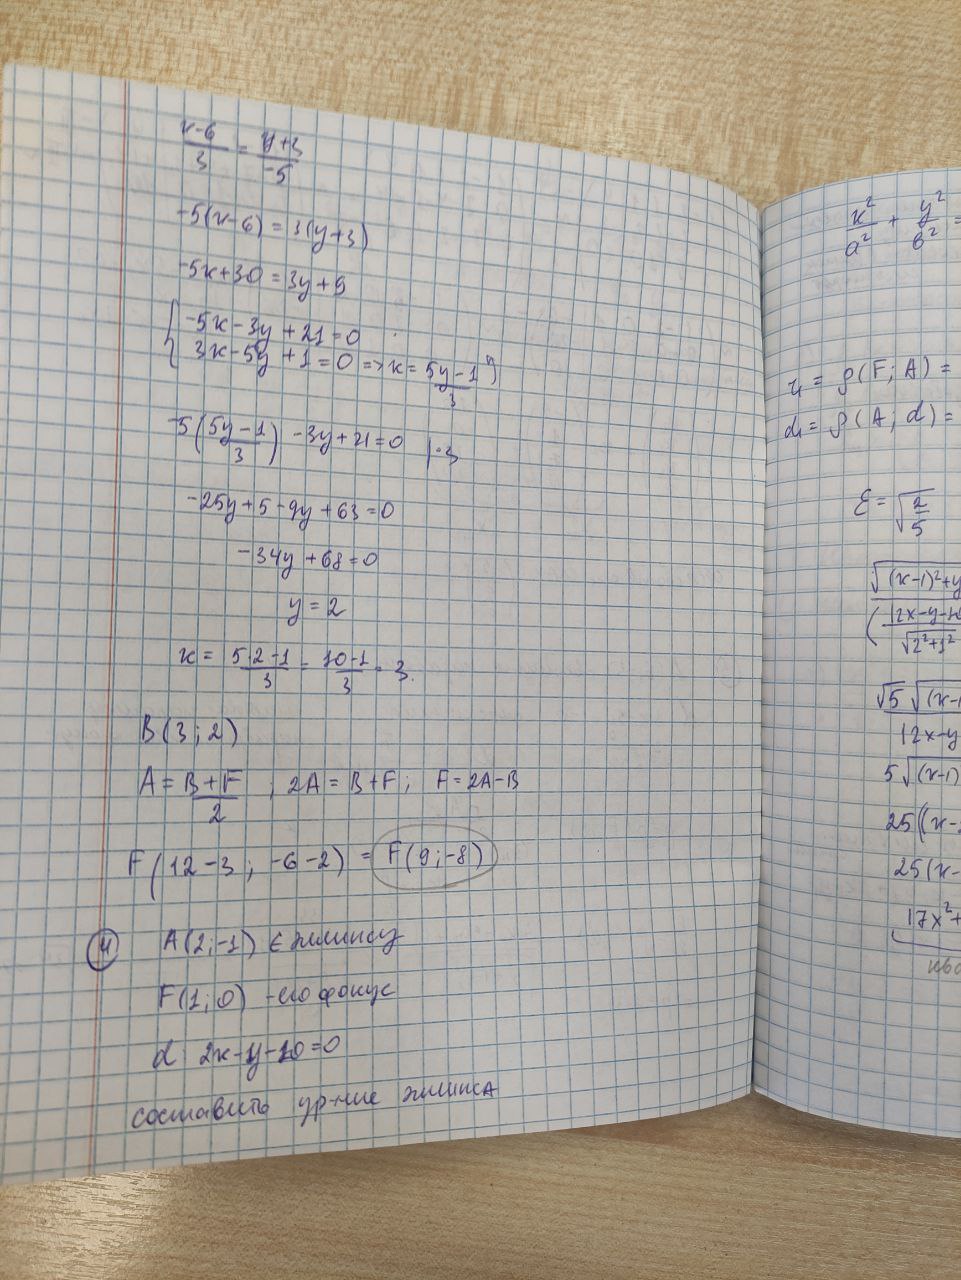 x-6/3 = y+3/-5
-5(x-6) = 3(y+3)
-5x+30 = 3y+9
{ -5x-3y+21=0
3x-5y+1=0 => x = 5y-1/3
-5(5y-1/3) -3y+21=0 |·3
-25y+5-9y+63=0
-34y+68=0
y=2
x = 5·2-1/3 = 10-1/3 = 3.
B(3;2)
A = B+F/2 ; 2A = B+F ; F=2A-B
F(12-3; -6-2) = F(9;-8)
4 A(2;-1) ∈ эллипсу
F(1;0) - его фокус
d: 2x-y-10=0
составить ур-ние эллипса
x²/a² + y²/b² =
r₁ = ρ(F;A) =
d₁ = ρ(A;d) =
ε = √2/5
√(x-1)²+y
(|2x-y-10/√2²+1²
√5 √(x-1
|2x-y
5√(x-1)
25((x-
25(x-
17x²+